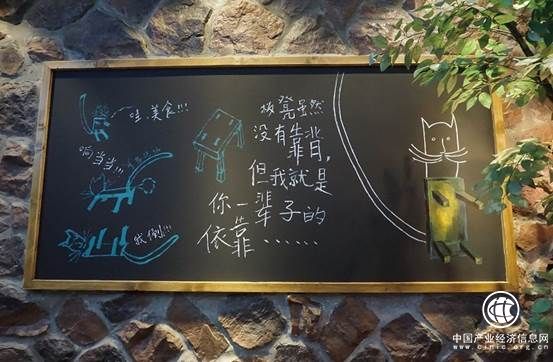 哇.美食!!!
响当当!!!
我倒!!!
板凳虽然
没有靠背,
但我就是
你一辈子的
依靠……
中国产业经济信息网
www.cinic.org.cn